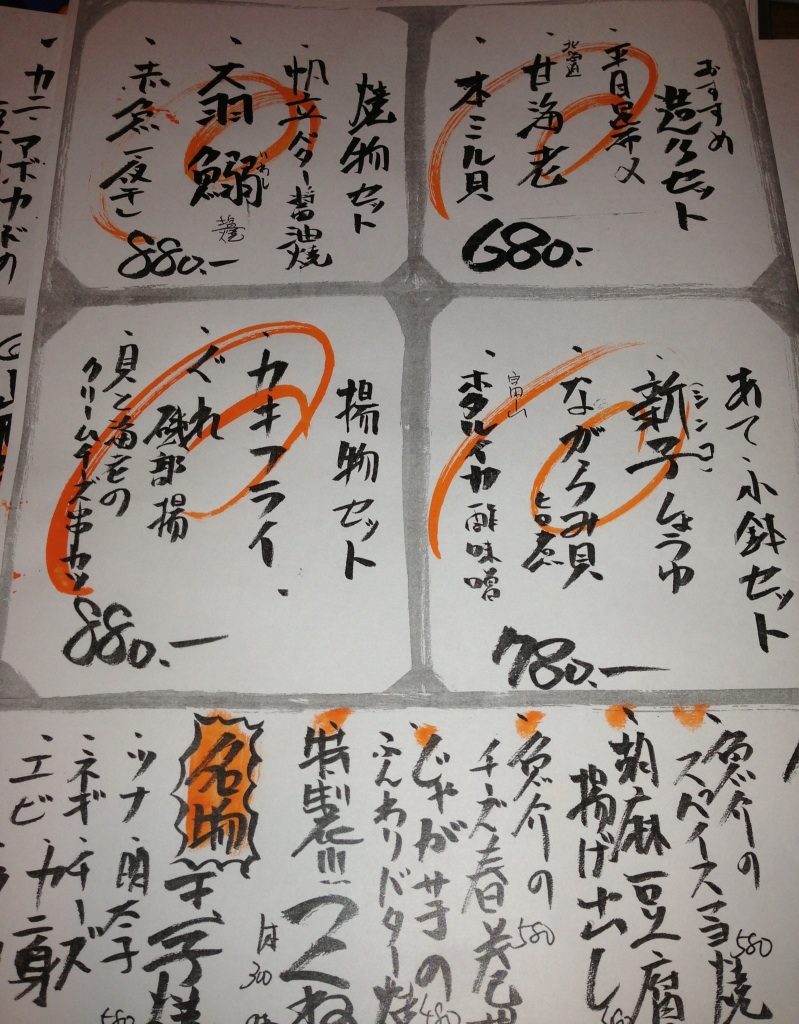 おすすめ
造りセット
・平目昆布〆
北海道
・甘海老
・本ミル貝
680.-
焼物セット
・帆立バター醤油焼
・大羽鰯
いわし
塩焼
・赤魚一夜干し
880.-
あて小鉢セット
・新子しょうゆ
(シンコ)
・ながらみ貝
旨煮
富山
・ホタルイカ酢味噌
780.-
揚物セット
・カキフライ
・ぐれ
磯部揚
・貝と
クリームチーズ串カツ
880.-
・魚介の
スパイス玉子焼
580
・胡麻豆腐
揚げ出し
・魚介の
チーズ春巻
580
・じゃが芋の
ふんわりバター焼
480
特製!!!つくね
1本300
名物
玉子焼
・ツナ・明太子
・ネギ・チーズ
・エビ・カニ身
580
・カニ・アボカドの